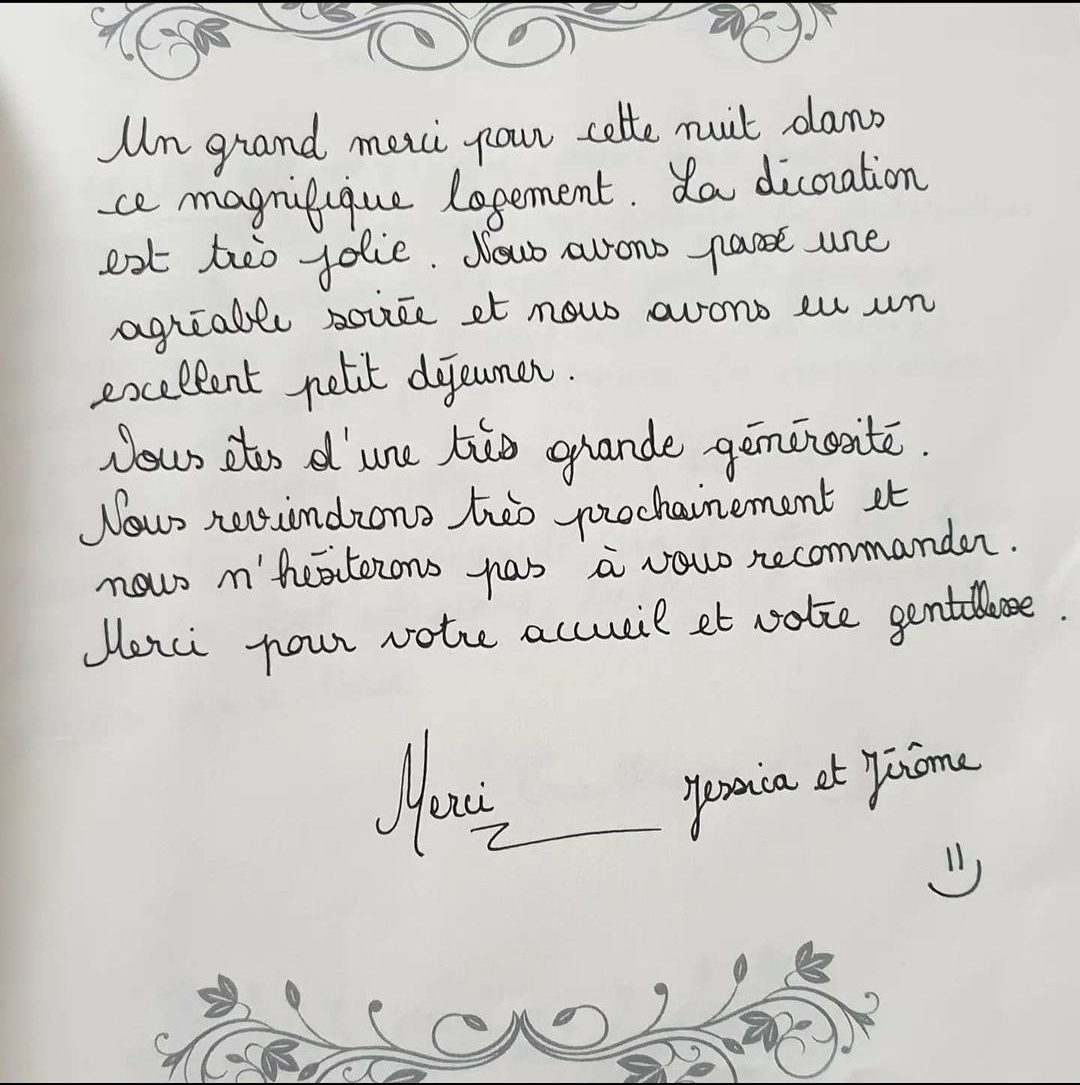 Un grand merci pour cette nuit dans
ce magnifique logement. La décoration
est très jolie. Nous avons passé une
agréable soirée et nous avons eu un
excellent petit déjeuner.
Vous êtes d'une très grande générosité.
Nous reviendrons très prochainement et
nous n'hésiterons pas à vous recommander.
Merci pour votre accueil et votre gentillesse.
Merci Jessica et Jérôme